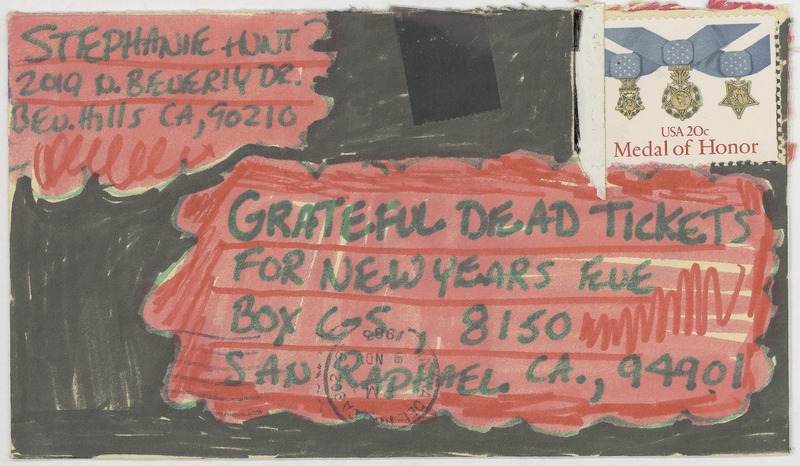 STEPHANIE HUNT
2019 N. BEVERLY DR.
BEV. Hills CA, 90210
USA 20c
Medal of Honor
GRATEFUL DEAD TICKETS
FOR NEW YEARS EVE
BOX CS, 8150
SAN RAPHAEL CA., 94901